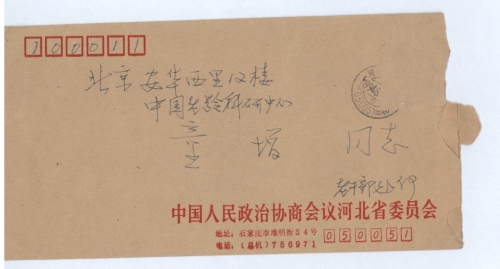 100011
北京安华西里仪楼
中国老龄科研中心
增 同志
中国人民政治协商会议河北省委员会
地址：石家庄市维明街34号 050051
电话：（总机）756971